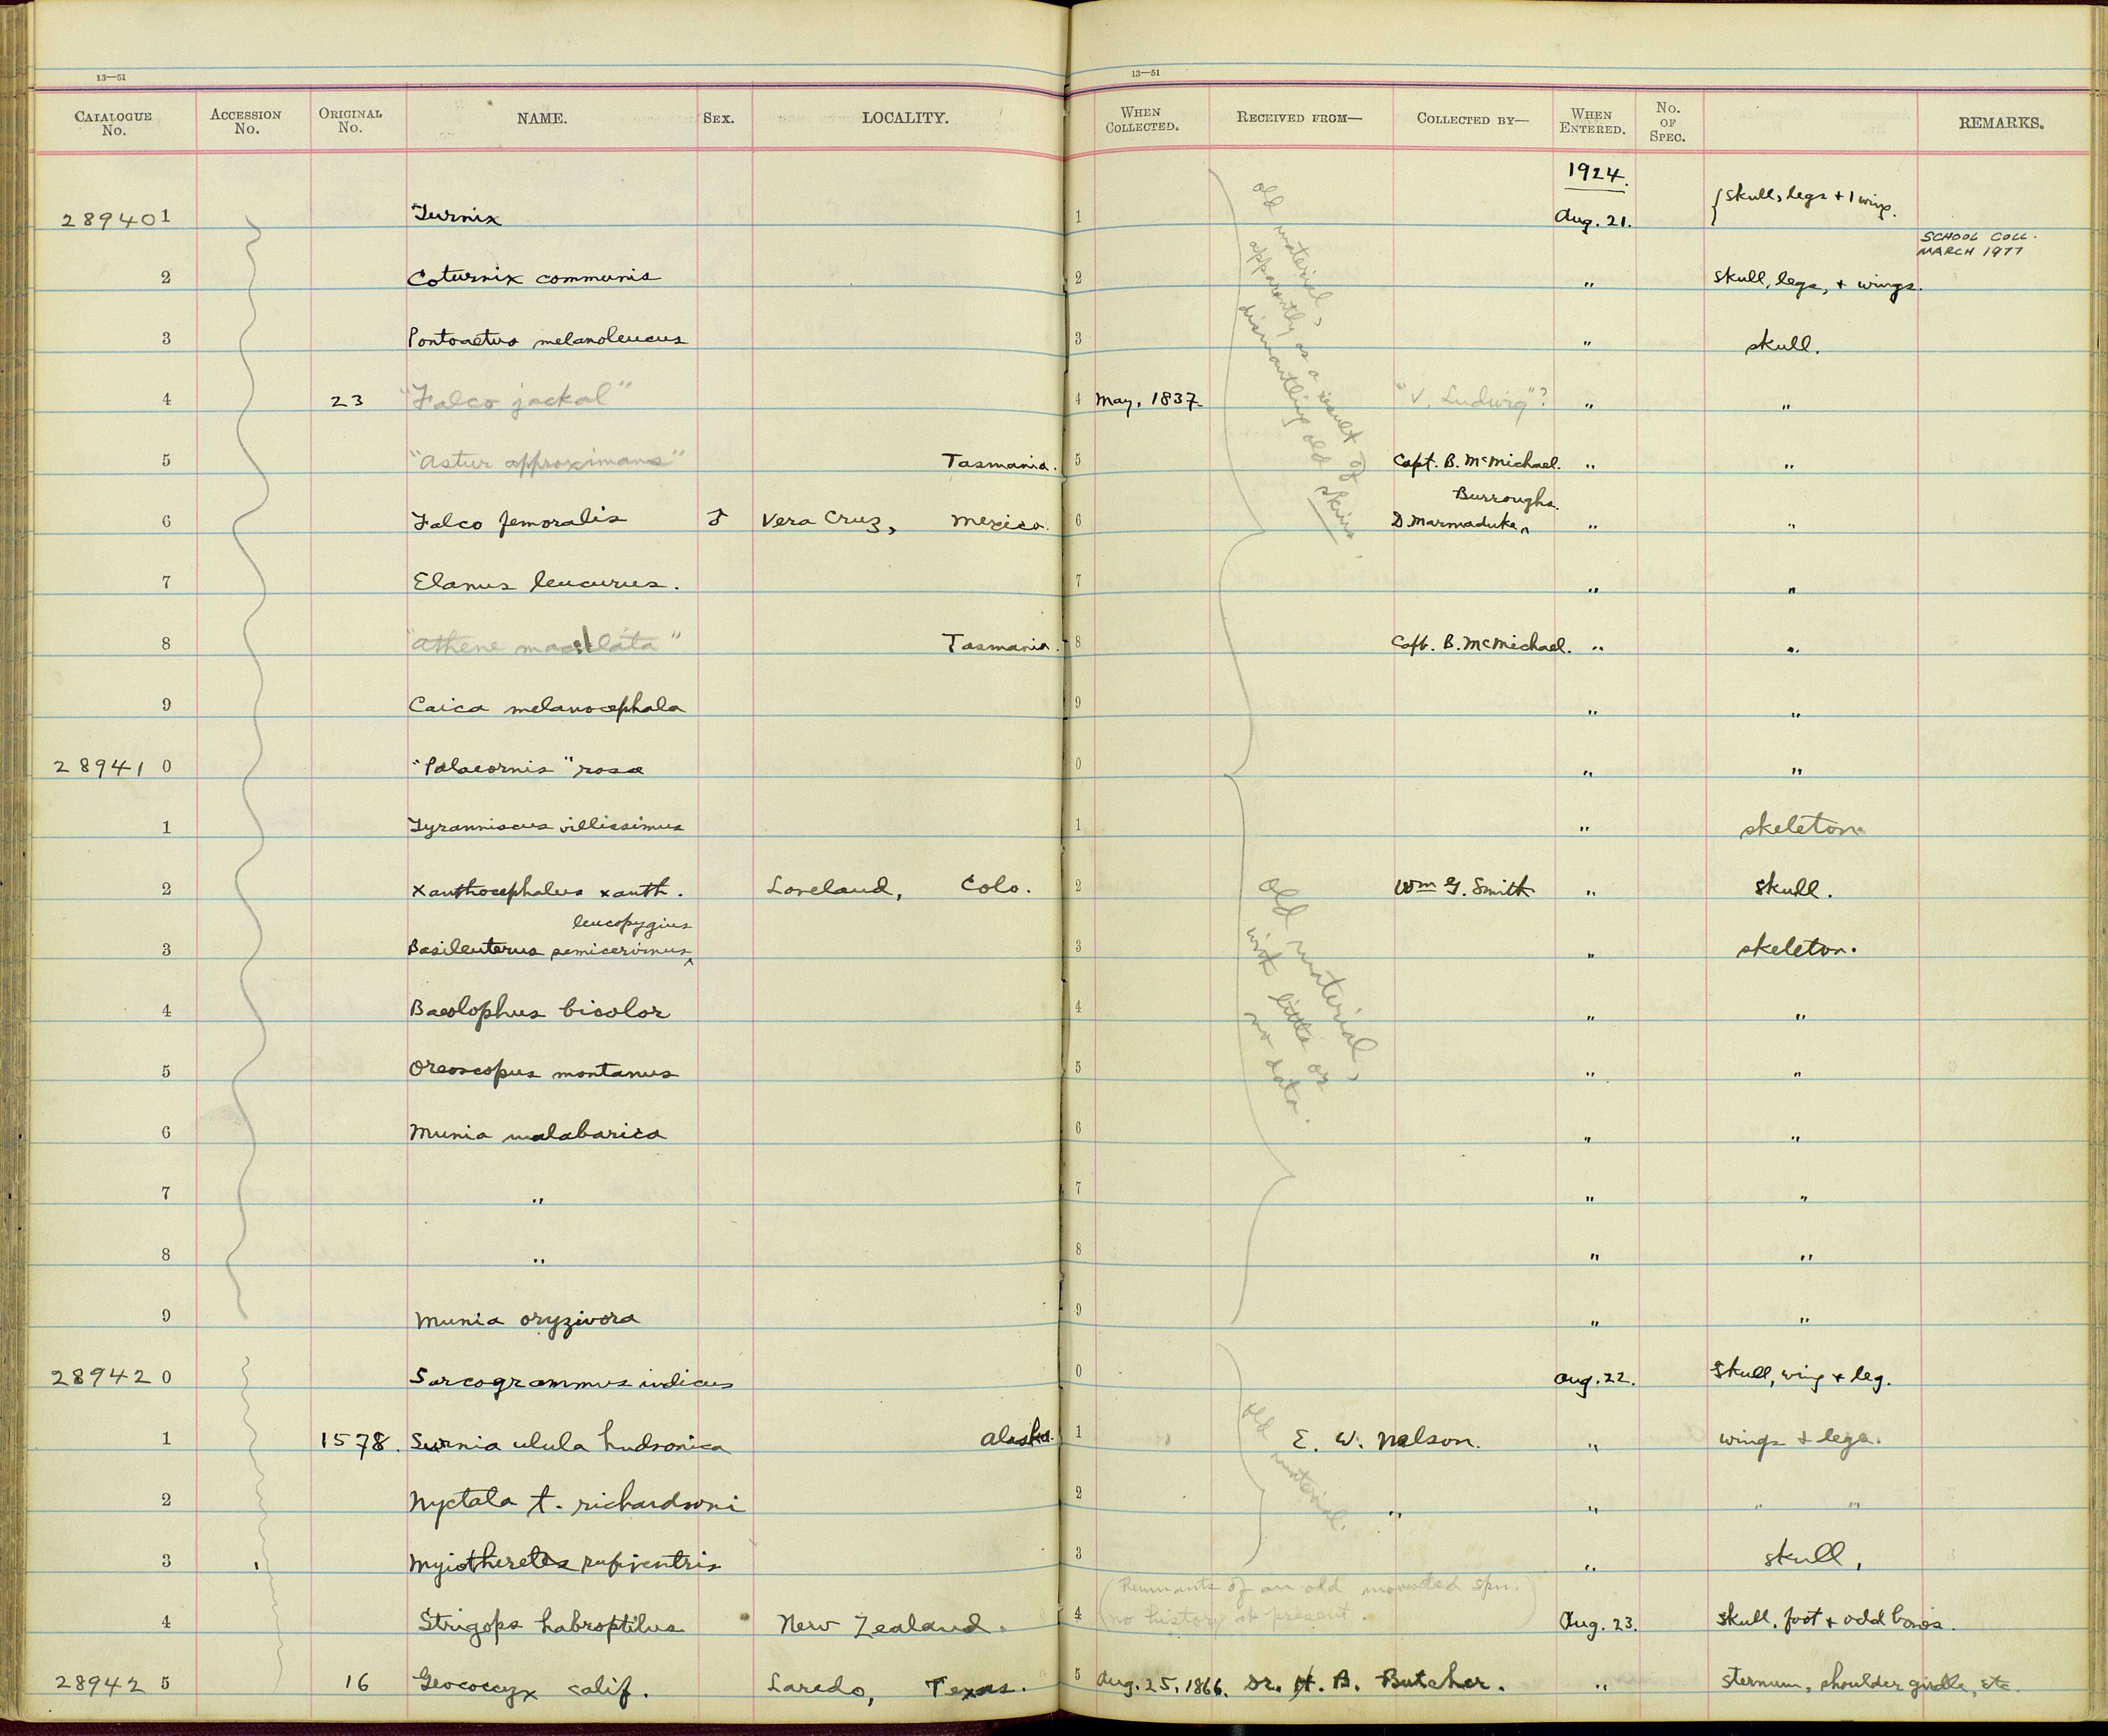 13—51 13—51
CATALOGUE No. ACCESSION No. ORIGINAL No. NAME. SEX. LOCALITY. WHEN COLLECTED. RECEIVED FROM— COLLECTED BY— WHEN ENTERED. No. OF SPEC. REMARKS.
1924.
289401 Turnix 1 Aug. 21. {skull, legs + 1 wing.
SCHOOL COLL.
MARCH 1977
2 Coturnix communis 2 " skull, legs, + wings.
3 Pontoaetus melanoleucus 3 " skull.
4 23 "Falco jackal" 4 May, 1837. "V. Ludwig"? " "
5 "Astur approximans" Tasmania. 5 Capt. B. McMichael. " "
Burroughs.
6 Falco femoralis ♂ Vera Cruz, Mexico. 6 D. Marmaduke ^ " "
7 Elanus leucurus. 7 " "
8 "Athene maculata" Tasmania. 8 Capt. B. McMichael. " "
9 Caica melanocephala 9 " "
old material,
apparently as a result of
dismantling old skins.
289410 "Palaeornis" rosa 0 " "
1 Tyranniscus villissimus 1 " skeleton.
2 Xanthocephalus xanth. Loveland, Colo. 2 Wm G. Smith " skull.
leucopygius
3 Basileuterus semicervinus ^ 3 " skeleton.
4 Baeolophus bicolor 4 " "
5 Oreoscopus montanus 5 " "
6 Munia malabarica 6 " "
7 " 7 " "
8 " 8 " "
9 Munia oryzivora 9 " "
old material,
with little or
no data.
289420 Sarcogrammus indicus 0 Aug. 22. Skull, wing + leg.
1 1578. Surnia ulula hudsonica Alaska. 1 E. W. Nelson. " wings + legs.
2 Nyctala t. richardsoni 2 " " " "
3 Myiotheretes rufiventris 3 " skull,
old material.
(Remnants of an old mounted spn.
no history at present.)
4 Strigops habroptilus New Zealand. 4 Aug. 23. skull, foot + odd bones.
289425 16 Geococcyx calif. Laredo, Texas. 5 Aug. 25, 1866. Dr. H. B. Butcher. " sternum, shoulder girdle, etc.